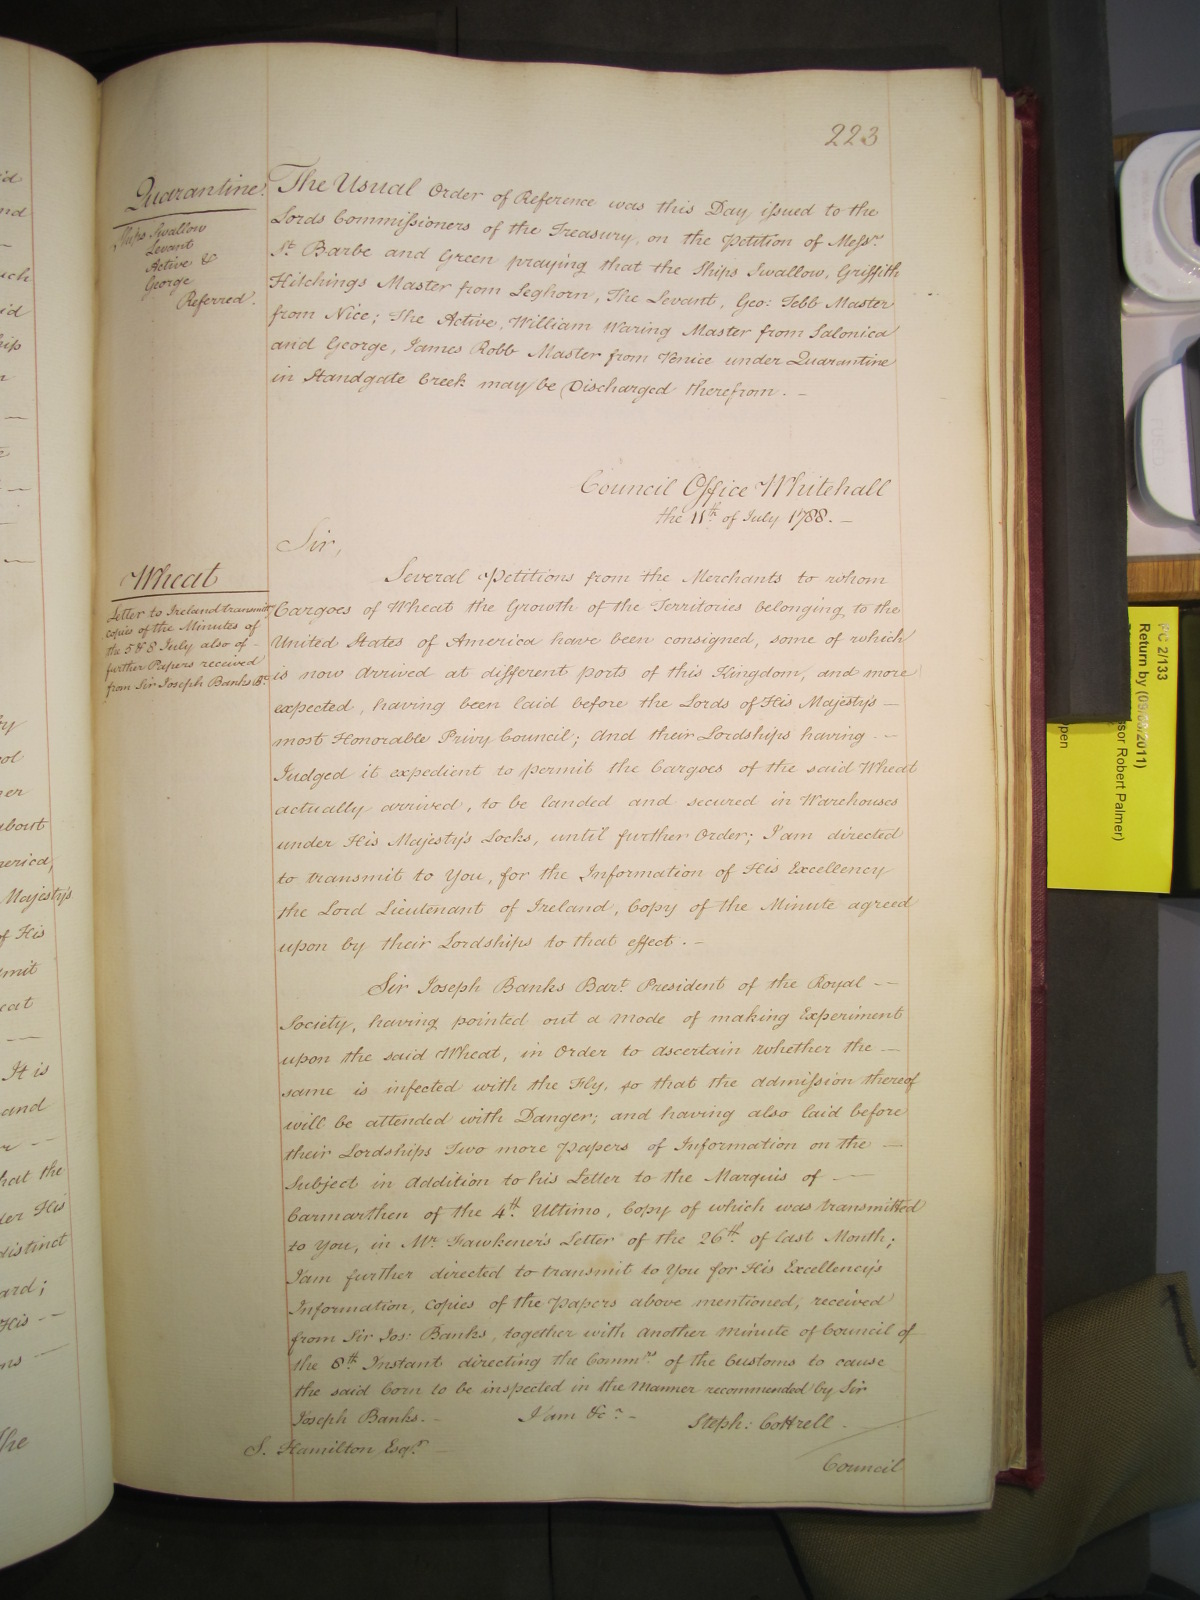 223
Quarantine.
Ships Swallow
Levant
Active &
George
Referred.
The Usual Order of Reference was this Day issued to the
Lords Commissioners of the Treasury, on the Petition of Messrs.
St. Barbe and Green praying that the Ships Swallow, Griffith
Hitchings Master from Leghorn, The Levant, Geo: Tebb Master
from Nice; The Active, William Waring Master from Salonica
and George, James Robb Master from Venice under Quarantine
in Standgate Creek may be Discharged therefrom. —
Council Office Whitehall
the 11th. of July 1788. —
Sir,
Wheat
Letter to Ireland transmitg
copies of the Minutes of
the 5 & 8 July also of
further Papers received
from Sir Joseph Banks Bt.
Several Petitions from the Merchants to whom
Cargoes of Wheat the Growth of the Territories belonging to the
United States of America have been consigned, some of which
is now arrived at different ports of this Kingdom, and more
expected, having been laid before the Lords of His Majesty's —
most Honorable Privy Council; and their Lordships having —
Judged it expedient to permit the Cargoes of the said Wheat
actually arrived, to be landed and secured in Warehouses
under His Majesty's Locks, until further Order; I am directed
to transmit to You, for the Information of His Excellency
the Lord Lieutenant of Ireland, Copy of the Minute agreed
upon by their Lordships to that effect. —
Sir Joseph Banks Bart. President of the Royal —
Society, having pointed out a Mode of making Experiment
upon the said Wheat, in Order to ascertain whether the —
same is infected with the Fly, so that the admission thereof
will be attended with Danger; and having also laid before
their Lordships Two more Papers of Information on the —
Subject in Addition to his Letter to the Marquis of —
Carmarthen of the 4th. Ultimo, Copy of which was transmitted
to You, in Mr. Fawkener's Letter of the 26th. of last Month;
I am further directed to transmit to You for His Excellency's
Information, Copies of the Papers above mentioned, received
from Sir Jos: Banks, together with another Minute of Council of
the 8th. Instant directing the Commrs. of the Customs to cause
the said Corn to be inspected in the Manner recommended by Sir
Joseph Banks. — I am &c. — Steph: Cottrell.
S. Hamilton Esqr.
Council
id
nd
uch
id
hip
ol
er
about
merica,
Majesty's
of His
mit
eat
It is
and
hat the
der His
distinct
ard;
His —
ns —
The
PC 2/133
Return by (09/05/2011)
ssor Robert Palmer)
pen